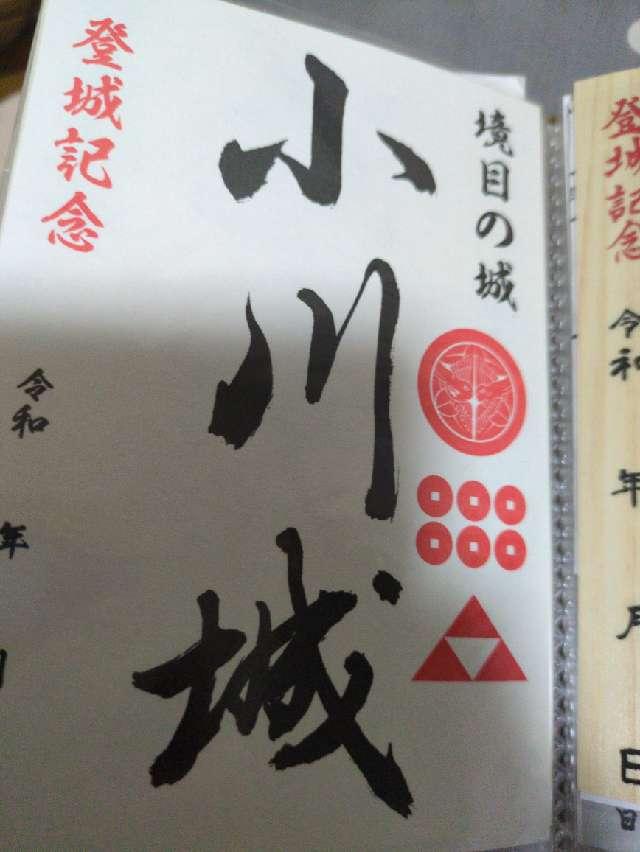 境目の城
小川城
登城記念
令和
年
登城記念
令和
年
月
日
日